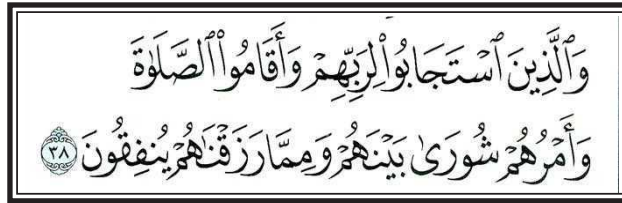 وَٱلَّذِينَ ٱسْتَجَابُوا۟ لِرَبِّهِمْ وَأَقَامُوا۟ ٱلصَّلَوٰةَ
وَأَمْرُهُمْ شُورَىٰ بَيْنَهُمْ وَمِمَّا رَزَقْنَٰهُمْ يُنفِقُونَ ٣٨